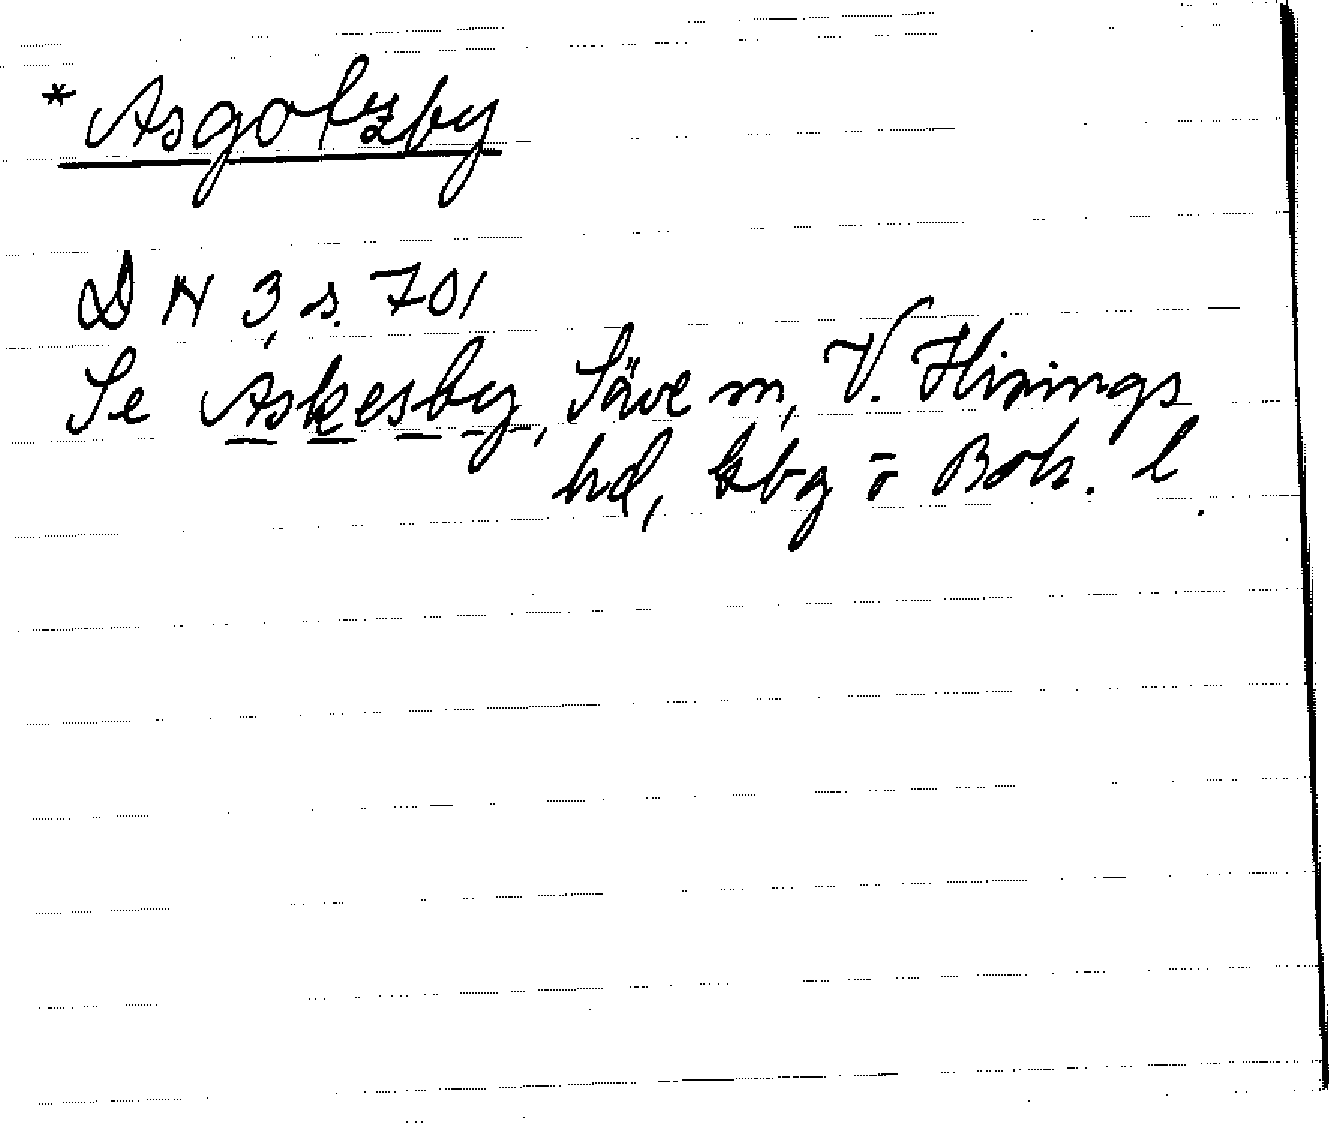 * Asgotzby
D N 3, s. 701
Se Askesby, Säve sn, V. Hisings
hd, Gbg o Boh. l.